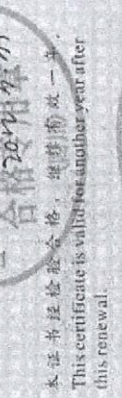 合格
本证书经检验合格，继续有效一年.
This certificate is valid for another year after
this renewal.